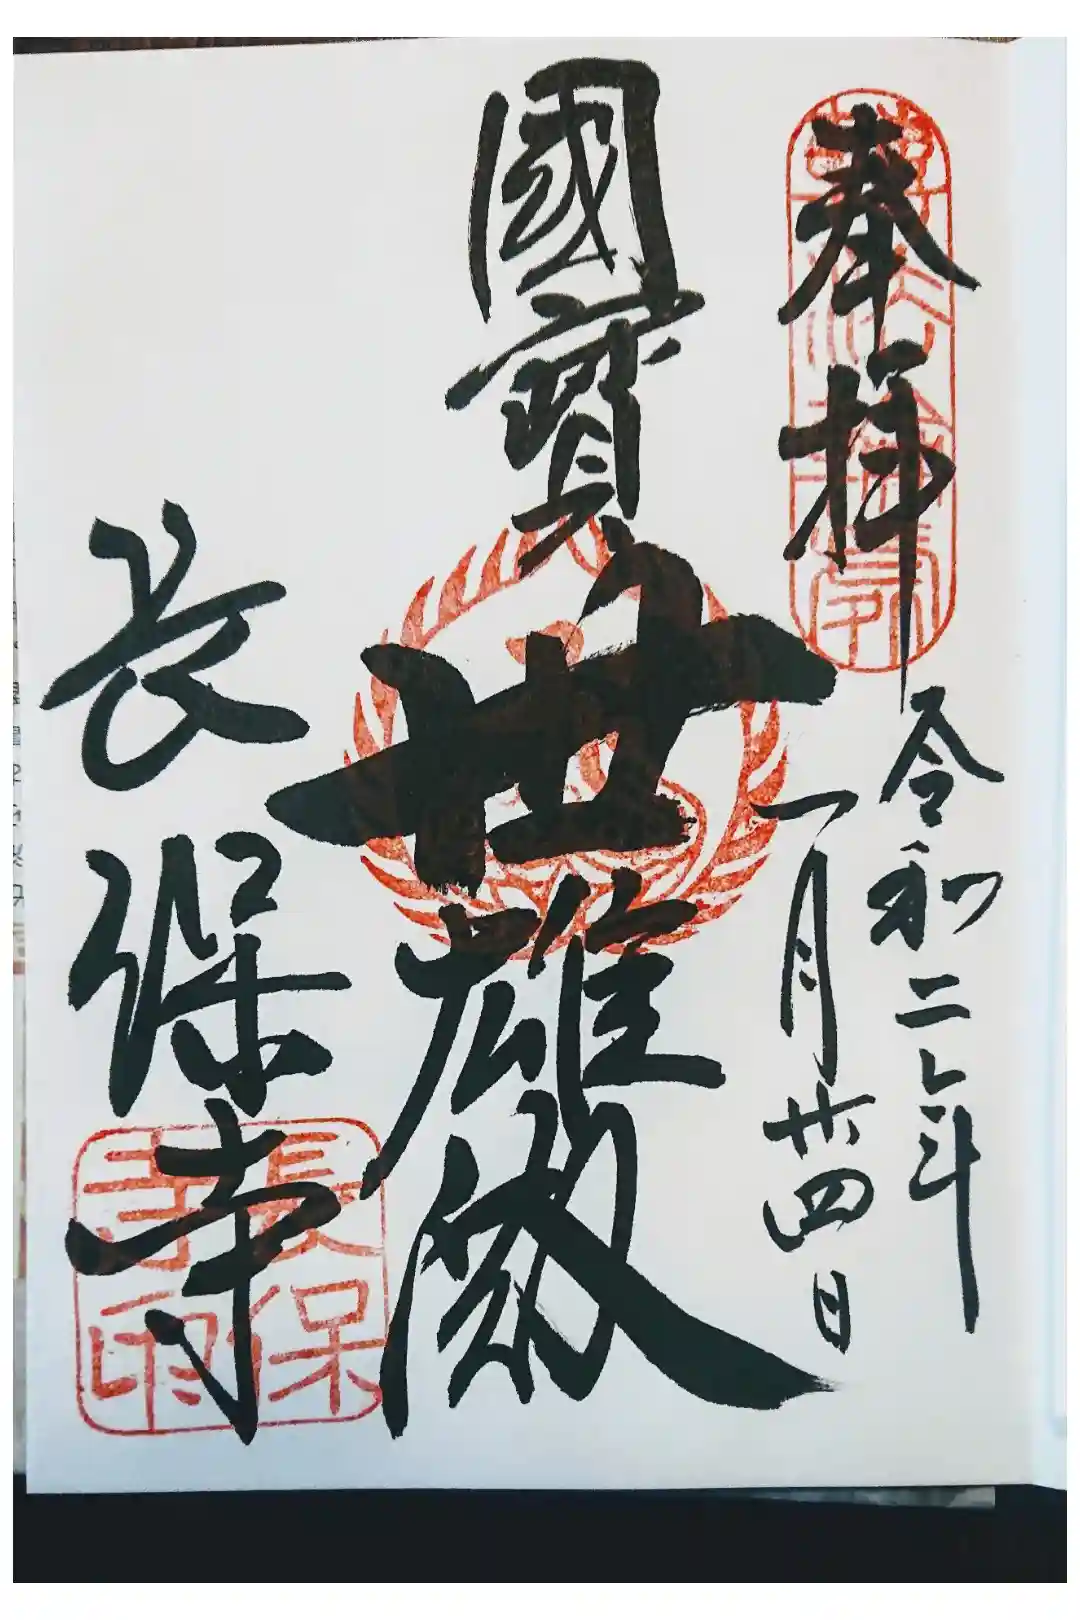 奉拝
令和二年
一月廿四日
國寳
世雄殿
長保寺
長保寺印